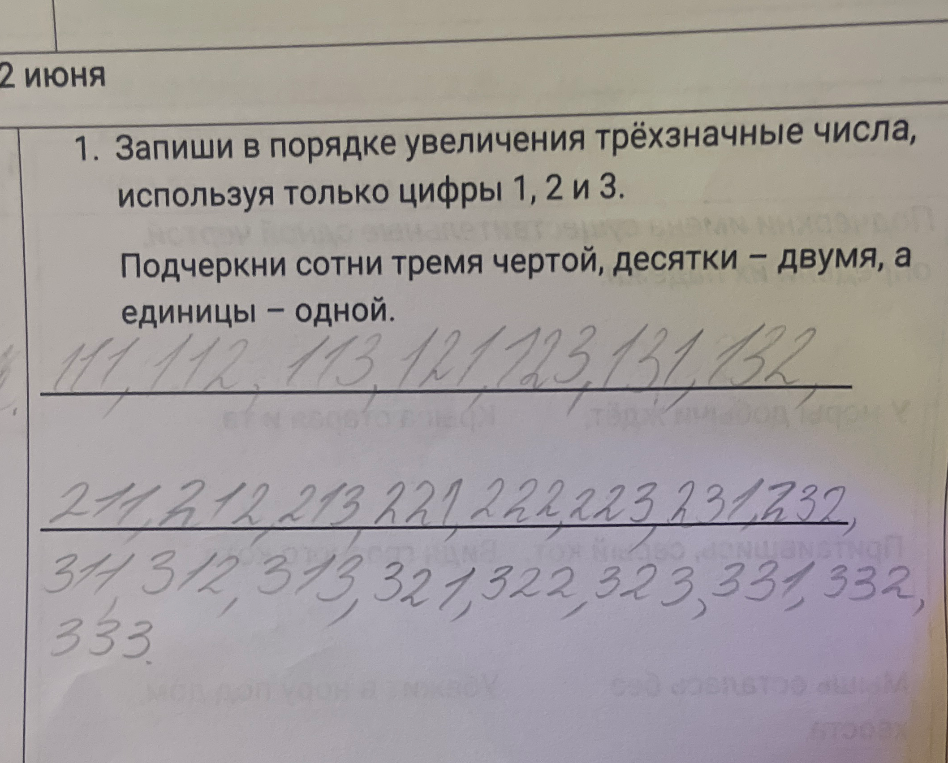 2 июня
1. Запиши в порядке увеличения трёхзначные числа,
используя только цифры 1, 2 и 3.
Подчеркни сотни тремя чертой, десятки – двумя, а
единицы – одной.
111, 112, 113, 121, 123, 131, 132,
211, 212, 213, 221, 222, 223, 231, 232,
311, 312, 313, 321, 322, 323, 331, 332,
333.